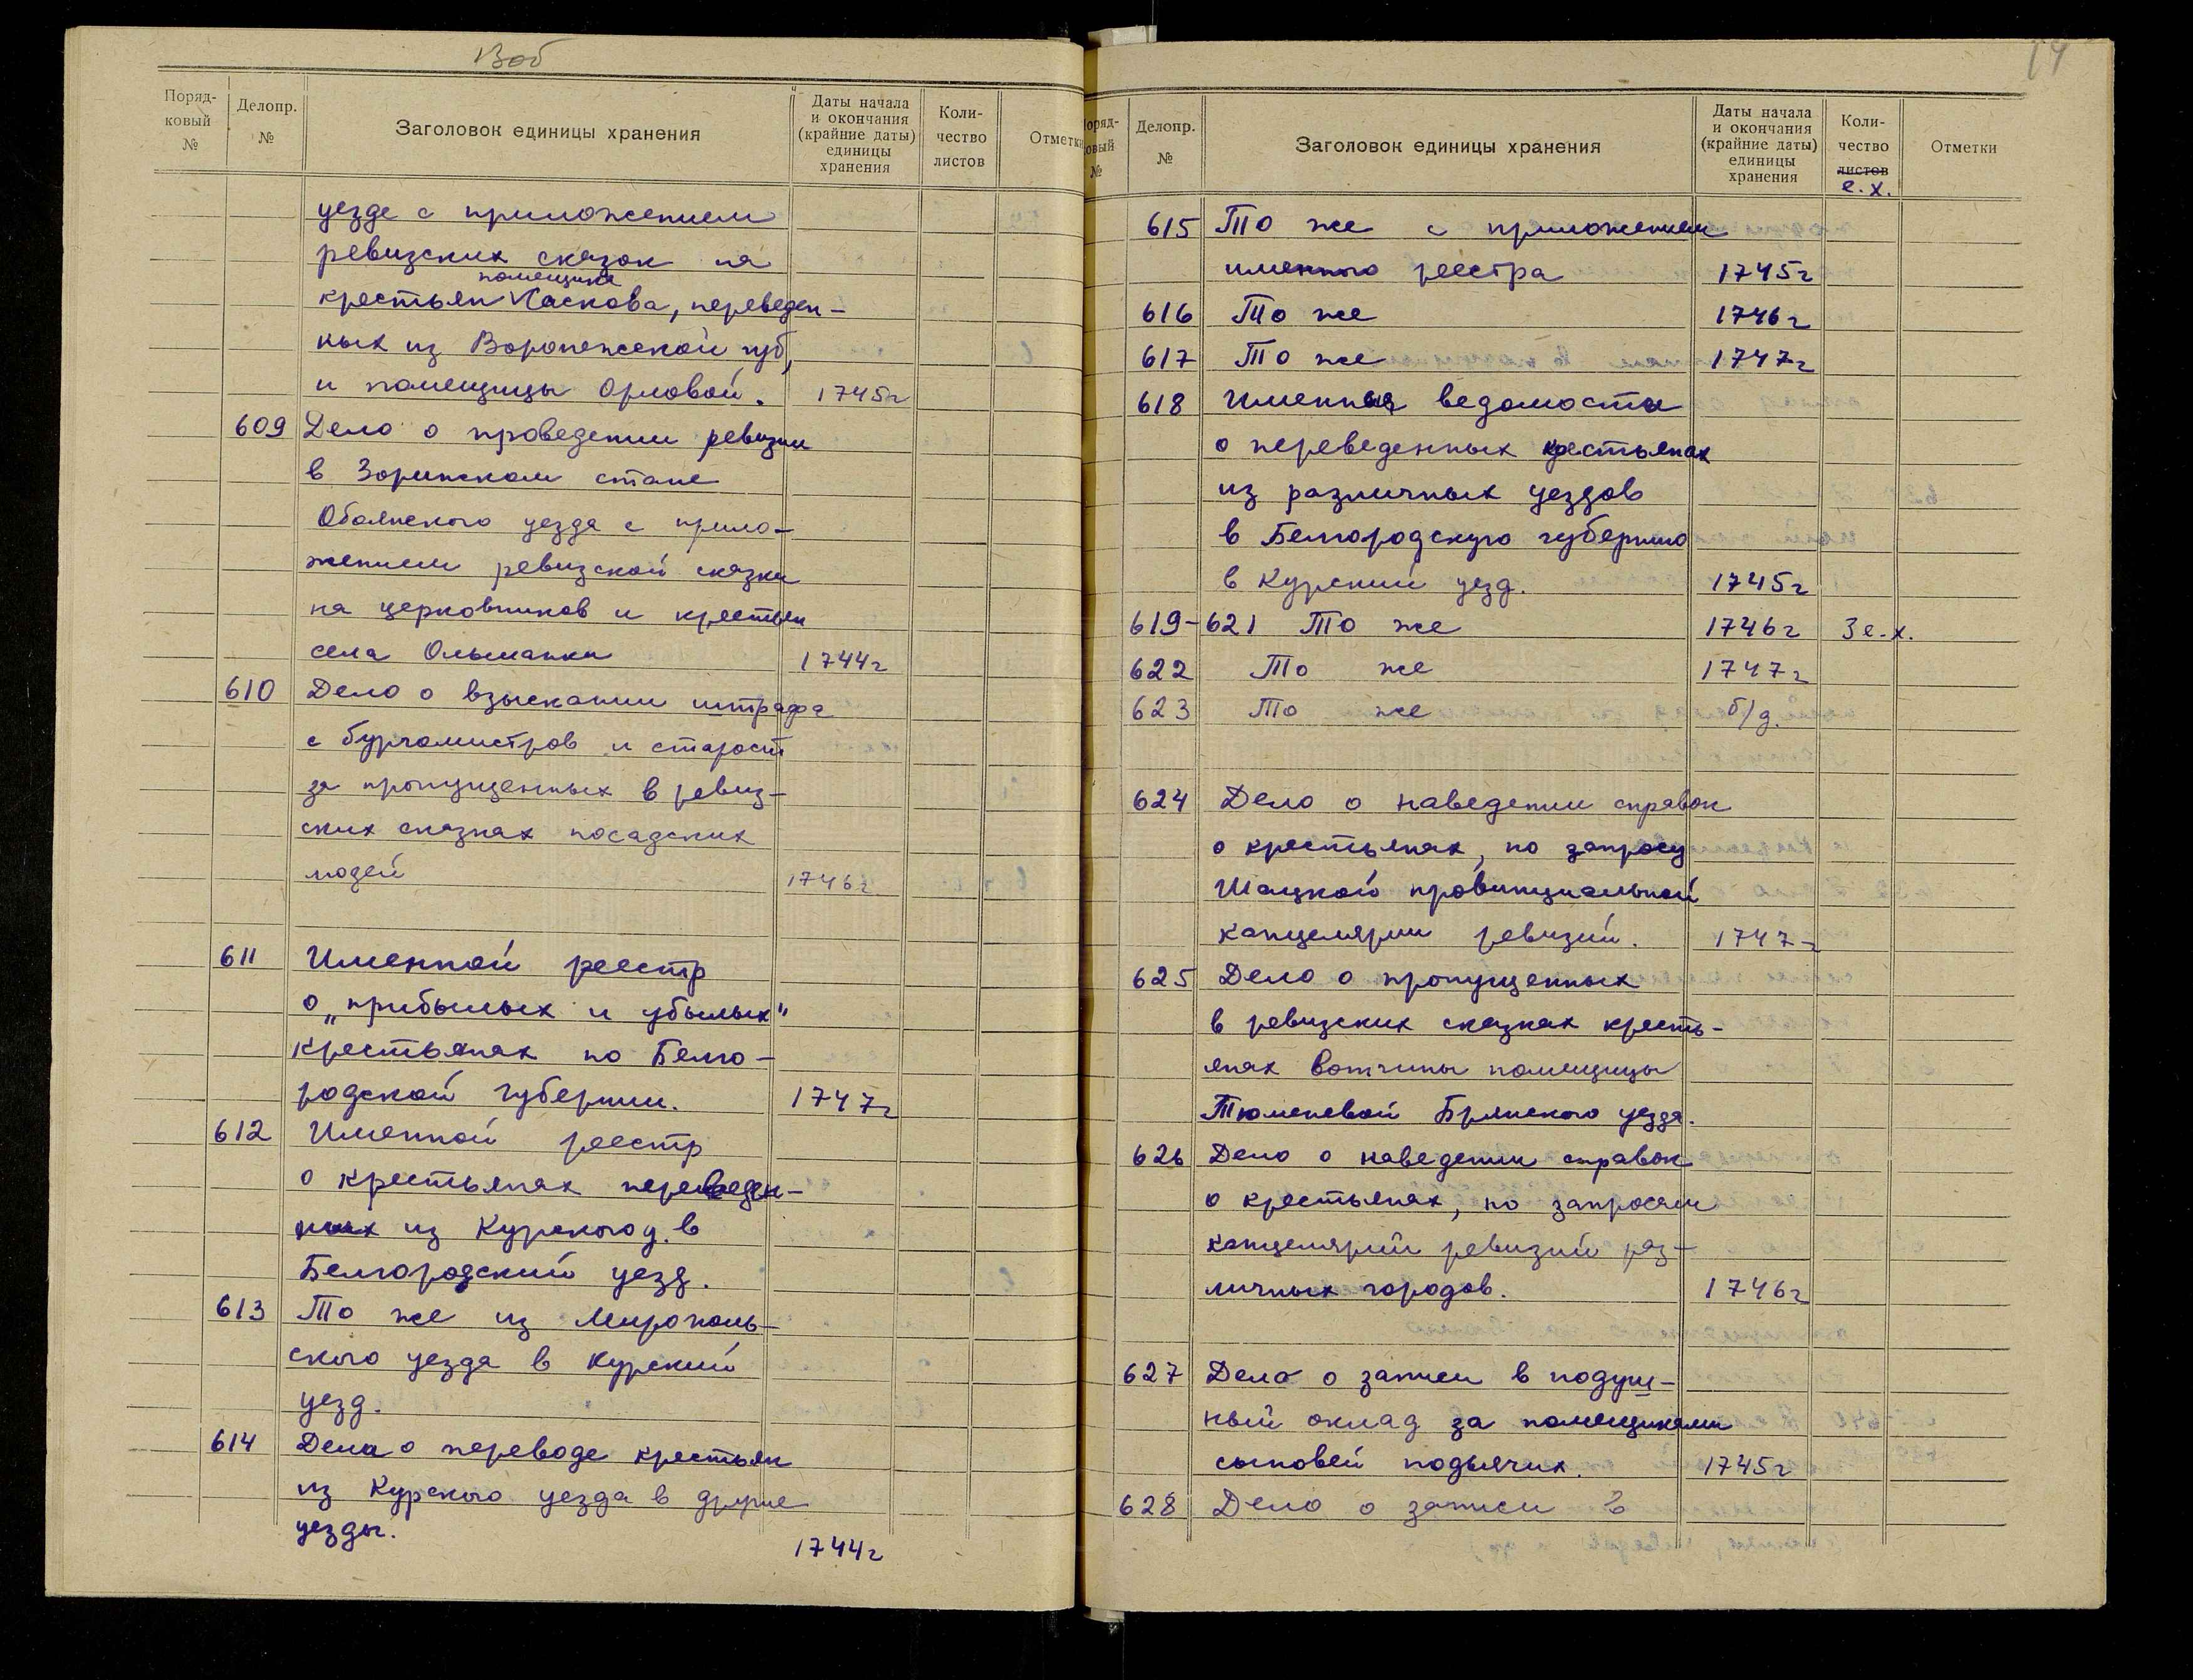 13об
Поряд-
ковый
№
Делопр.
№
Заголовок единицы хранения
Даты начала
и окончания
(крайние даты)
единицы
хранения
Коли-
чество
листов
Отметки
уезде с приложением
ревизских сказок на
помещика
крестьян Паскова, переведен-
ных из Воронежской губ,
и помещицы Орловой. 1745г
609 Дело о проведении ревизии
в Зоринском стане
Обоянского уезда с прило-
жением ревизской сказки
на церковников и крестьян
села Ольшанки 1744г
610 Дело о взыскании штрафа
с бургомистров и старост
за пропущенных в ревиз-
ских сказках посадских
людей 1746г
611 Именной реестр
о „прибылых и убылых"
крестьянах по Белго-
родской губернии. 1747г
612 Именной реестр
о крестьянах переведен-
ных из Курского у. в
Белгородский уезд.
613 То же из Мирополь-
ского уезда в Курский
уезд.
614 Дела о переводе крестьян
из Курского уезда в другие
уезды. 1744г
14
Поряд-
ковый
№
Делопр.
№
Заголовок единицы хранения
Даты начала
и окончания
(крайние даты)
единицы
хранения
Коли-
чество
листов
е.х.
Отметки
615 То же с приложением
именного реестра 1745г
616 То же 1746г
617 То же 1747г
618 Именная ведомость
о переведенных крестьянах
из различных уездов
в Белгородскую губернию
в Курский уезд. 1745г
619-621 То же 1746г 3 е.х.
622 То же 1747г
623 То же б/д.
624 Дело о наведении справок
о крестьянах, по запросу
Шацкой провинциальной
канцелярии ревизий. 1747г
625 Дело о пропущенных
в ревизских сказках кресть-
янах вотчины помещицы
Тюменевой Брянского уезда.
626 Дело о наведении справок
о крестьянах, по запросам
канцелярий ревизий раз-
личных городов. 1746г
627 Дело о записи в подуш-
ный оклад за помещиками
сыновей подьячих. 1745г
628 Дело о записи в